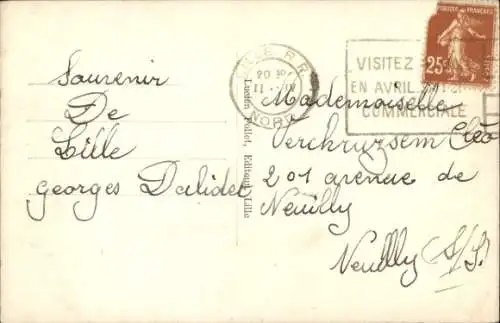 Souvenir
De
Lille
Georges Dalidet
LILLE R.R.
NORD
VISITEZ
EN AVRIL
COMMERCIALE
POSTES FRANÇAISE
25c
Lucien Pollet, Editeur, Lille
Mademoiselle
Verchruysem Cléo
201 avenue de
Neuilly
Neuilly S/S.